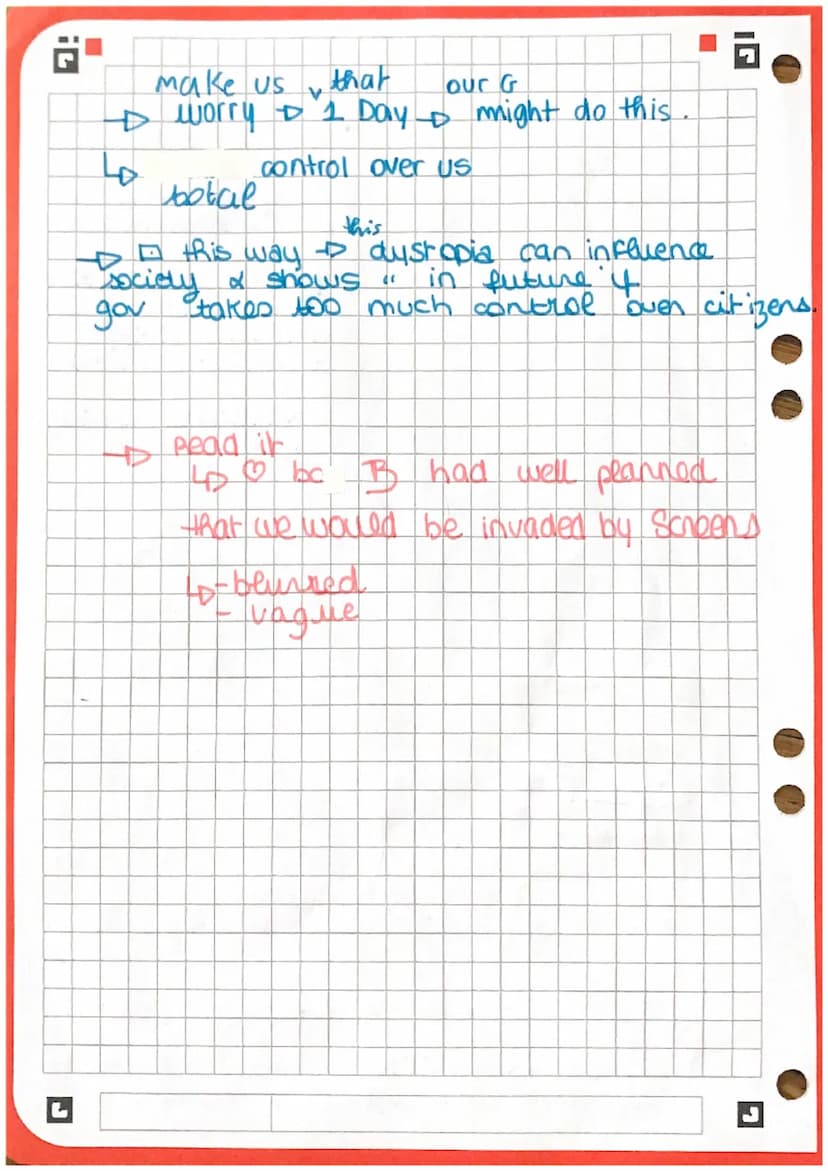 make us that our G
→ worry → 1 Day → might do this.
↳ control over us
total
this
→ ⊡ this way → dystopia can influence
society & shows " in future if
gov takes too much control over citizens.
→ Read it
↳ ♡ bc B had well planned
that we would be invaded by Screens
↳ - blurred
- vague